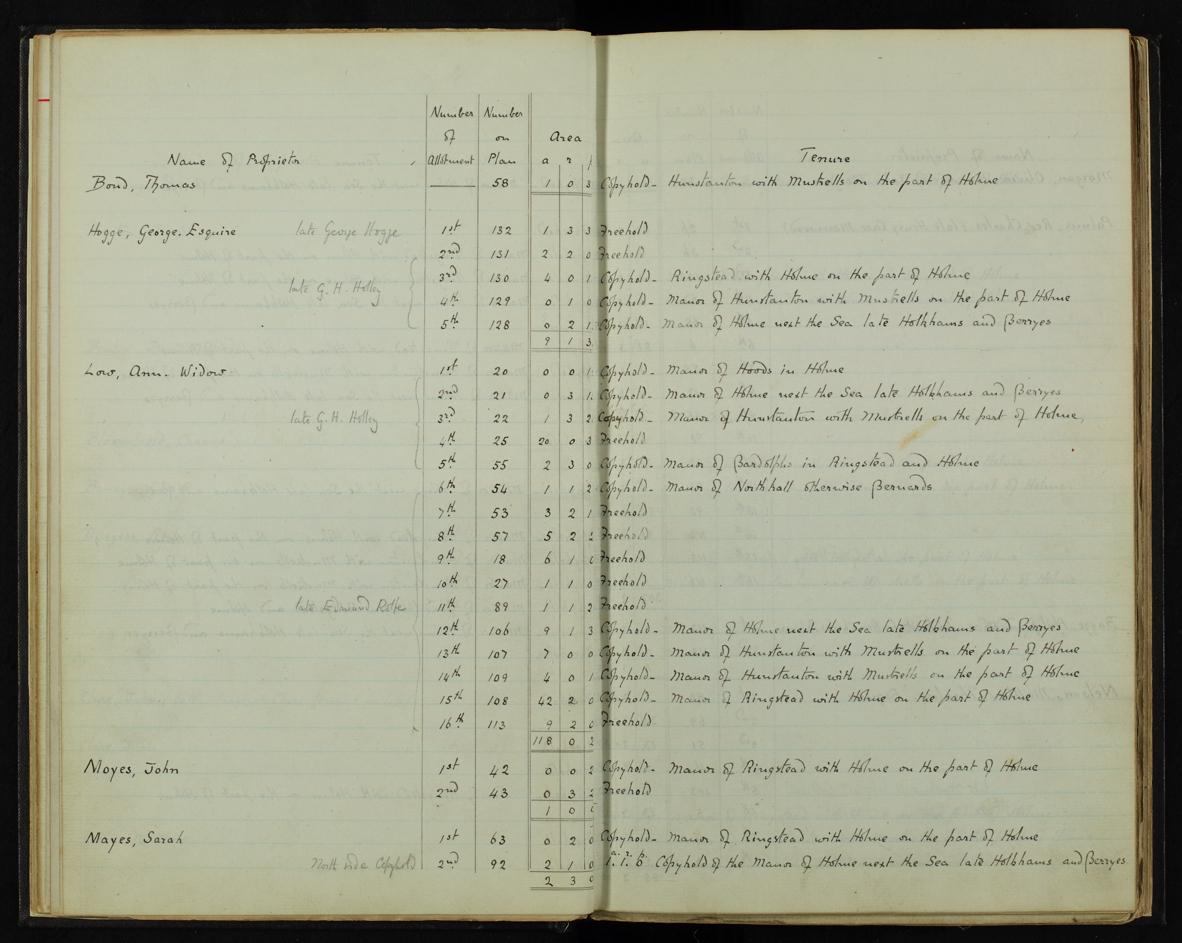 Number Number
of on Area
Name of Proprietor Allotment Plan a r p Tenure
Bond, Thomas — 58 1 0 3 Copyhold - Hunstanton with Mustrells on the part of Holme
Hogge, George. Esquire late George Hogge 1st 132 1 3 3 Freehold
2nd 131 2 2 0 Freehold
3rd 130 4 0 1 Copyhold - Ringstead with Holme on the part of Holme
late G. H. Holley
4th 129 0 1 0 Copyhold - Manor of Hunstanton with Mustrells on the part of Holme
5th 128 0 2 1 Copyhold - Manor of Holme next the Sea late Holkhams and Berryes
9 1 3
Low, Ann. Widow 1st 20 0 0 1 Copyhold - Manor of Hoods in Holme
2nd 21 0 3 1 Copyhold - Manor of Holme next the Sea late Holkhams and Berryes
late G. H. Holley 3rd 22 1 3 2 Copyhold - Manor of Hunstanton with Mustrells on the part of Holme,
4th 25 20 0 3 Freehold
5th 55 2 3 0 Copyhold - Manor of Bardolphs in Ringstead and Holme
6th 54 1 1 2 Copyhold - Manor of Northhall otherwise Bernards
7th 53 3 2 1 Freehold
8th 57 5 2 2 Freehold
9th 18 6 1 Freehold
10th 27 1 1 0 Freehold
late Edmund Rolfe 11th 89 1 1 2 Freehold
12th 106 9 1 3 Copyhold - Manor of Holme next the Sea late Holkhams and Berryes
13th 107 7 0 0 Copyhold - Manor of Hunstanton with Mustrells on the part of Holme
14th 109 4 0 1 Copyhold - Manor of Hunstanton with Mustrells on the part of Holme
15th 108 42 2 0 Copyhold - Manor of Ringstead with Holme on the part of Holme
16th 113 9 2 0 Freehold
118 0 2
Moyes, John 1st 42 0 0 2 Copyhold - Manor of Ringstead with Holme on the part of Holme
2nd 43 0 3 2 Freehold
1 0
Mayes, Sarah 1st 63 0 2 0 Copyhold - Manor of Ringstead with Holme on the part of Holme
North side Copyhold 2nd 92 2 1 0 Copyhold of the Manor of Holme next the Sea late Holkhams and Berryes
2 3 0